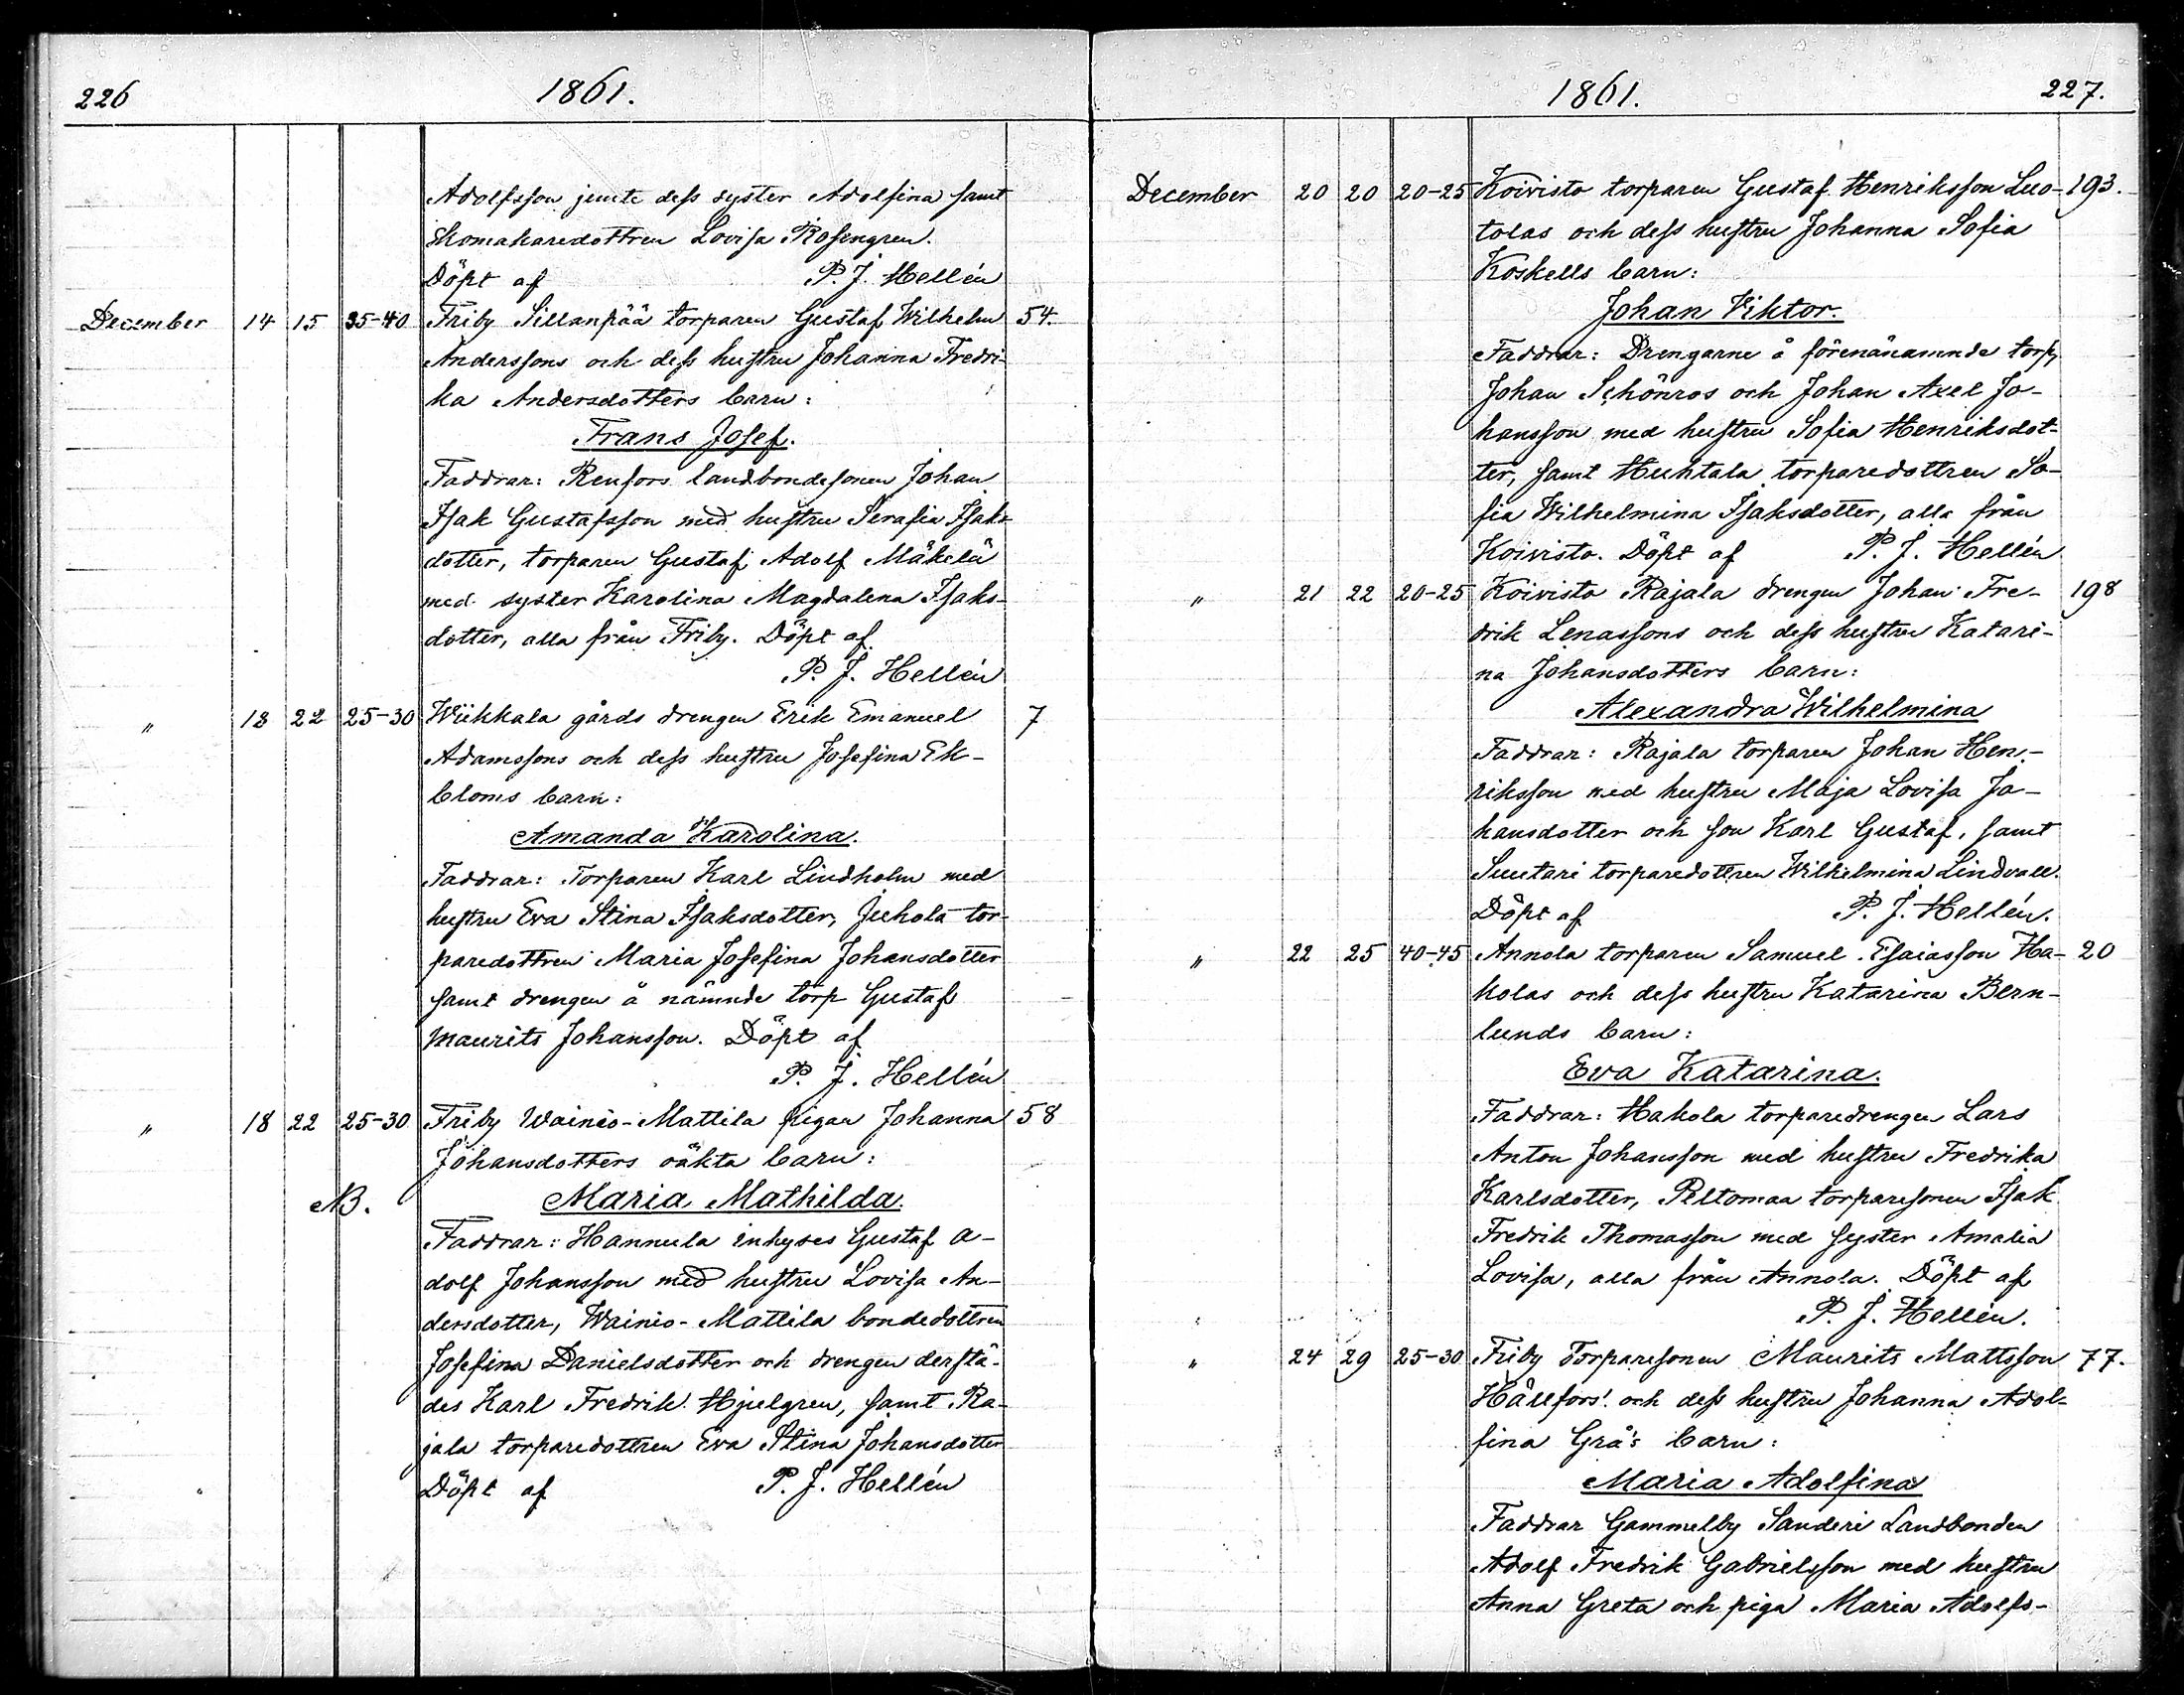 226
1861.
Adolfsson jemte dess syster Adolfina samt
skomakaredottren Lovisa Rosengren.
Döpt af P. J. Hellén
December 14 15 35-40 Friby Sillanpää torparen Gustaf Wilhelm 54.
Anderssons och dess hustru Johanna Fredri-
ka Andersdotters barn:
Frans Josef.
Faddrar: Renfors landbondesonen Johan
Isak Gustafsson med hustru Serafia Isaks-
dotter, torparen Gustaf Adolf Mäkelä
med syster Karolina Magdalena Isaks-
dotter, alla från Friby. Döpt af
P. J. Hellén
" 18 22 25-30 Wiikkala gårds drengen Erik Emanuel 7
Adamssons och dess hustru Josefina Ek-
bloms barn:
Amanda Karolina.
Faddrar: Torparen Karl Lindholm med
hustru Eva Stina Isaksdotter, Juhola tor-
paredottren Maria Josefina Johansdotter
samt drengen å nämnde torp Gustaf
Maurits Johansson. Döpt af
P. J. Hellén
" 18 22 25-30 Friby Wainio-Mattila pigan Johanna 58
Johansdotters oäkta barn:
NB. Maria Mathilda.
Faddrar: Hannula inhyses Gustaf A-
dolf Johansson med hustru Lovisa An-
dersdotter, Wainio-Mattila bondedottren
Josefina Danielsdotter och drengen derstä-
des Karl Fredrik Hjelgren, samt Ra-
jala torparedottren Eva Stina Johansdotter
Döpt af P. J. Hellén
1861.
227.
December 20 20 20-25 Koivisto torparen Gustaf Henriksson Luo- 193.
tolas och dess hustru Johanna Sofia
Koskells barn:
Johan Viktor.
Faddrar: Drengarne å förenämnde torp,
Johan Schönros och Johan Axel Jo-
hansson med hustru Sofia Henriksdot-
ter, samt Huhtala torparedottren So-
fia Wilhelmina Isaksdotter, alla från
Koivisto. Döpt af P. J. Hellén
" 21 22 20-25 Koivisto Rajala drengen Johan Fre- 198
drik Lenassons och dess hustru Katari-
na Johansdotters barn:
Alexandra Wilhelmina
Faddrar: Rajala torparen Johan Hen-
riksson med hustru Maja Lovisa Jo-
hansdotter och son Karl Gustaf, samt
Suutari torparedottren Wilhelmina Lindvall.
Döpt af P. J. Hellén.
" 22 25 40-45 Annola torparen Samuel Esaiasson Ha- 20
kolas och dess hustru Katarina Bern-
lunds barn:
Eva Katarina.
Faddrar: Hakola torparedrengen Lars
Anton Johansson med hustru Fredrika
Karlsdotter, Peltomaa torparesonen Isak
Fredrik Thomasson med syster Amalia
Lovisa, alla från Annola. Döpt af
P. J. Hellén.
" 24 29 25-30 Friby Torparesonen Maurits Mattsson 77.
Hällfors' och dess hustru Johanna Adol-
fina Grå's barn:
Maria Adolfina
Faddrar Gammelby Sanderi Landbonden
Adolf Fredrik Gabrielsson med hustru
Anna Greta och piga Maria Adolfs-